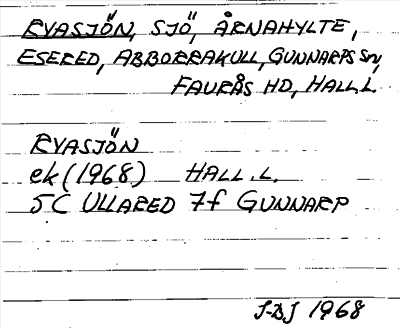 RYASJÖN, SJÖ, ÅRNAHYLTE,
ESERED, ABBORRAKULL, GUNNARPS SN,
FAURÅS HD, HALL.L
RYASJÖN
ek (1968) HALL.L.
5C ULLARED 7f GUNNARP
J-DJ 1968